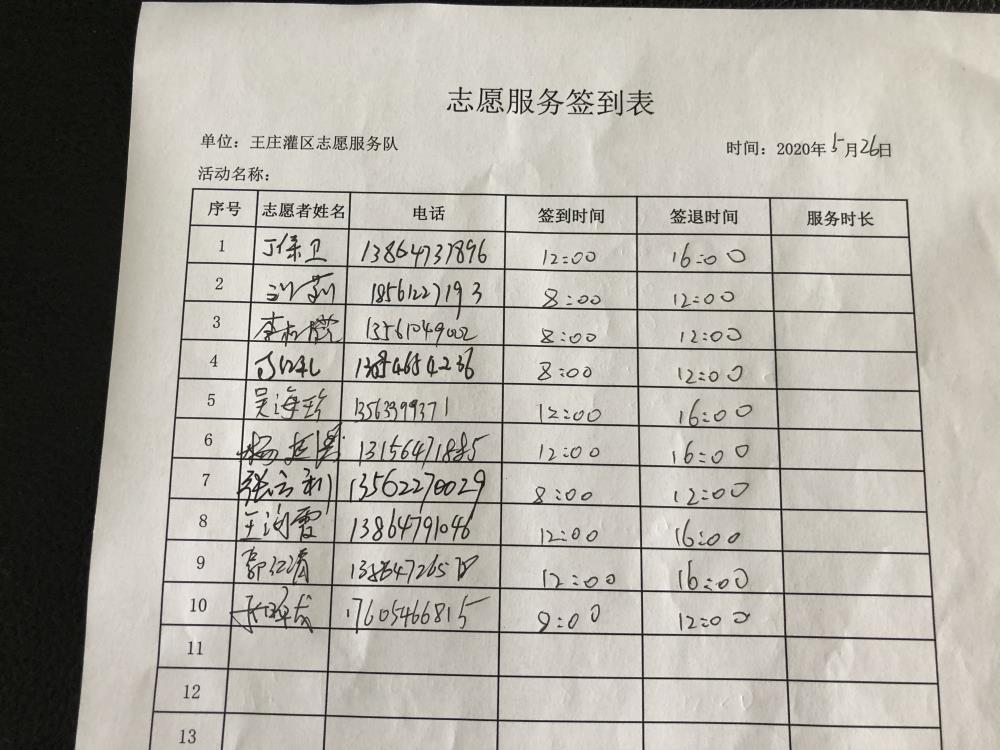 志愿服务签到表
单位：王庄灌区志愿服务队 时间：2020年5月26日
活动名称：
序号 志愿者姓名 电话 签到时间 签退时间 服务时长
1 丁保卫 13864737896 12:00 16:00
2 18561227193 8:00 12:00
3 13561049002 8:00 12:00
4 8:00 12:00
5 吴海珍 1356399371 12:00 16:00
6 13156471885 12:00 16:00
7 13562270029 8:00 12:00
8 13864791046 12:00 16:00
9 12:00 16:00
10 17605466815 12:00
11
12
13